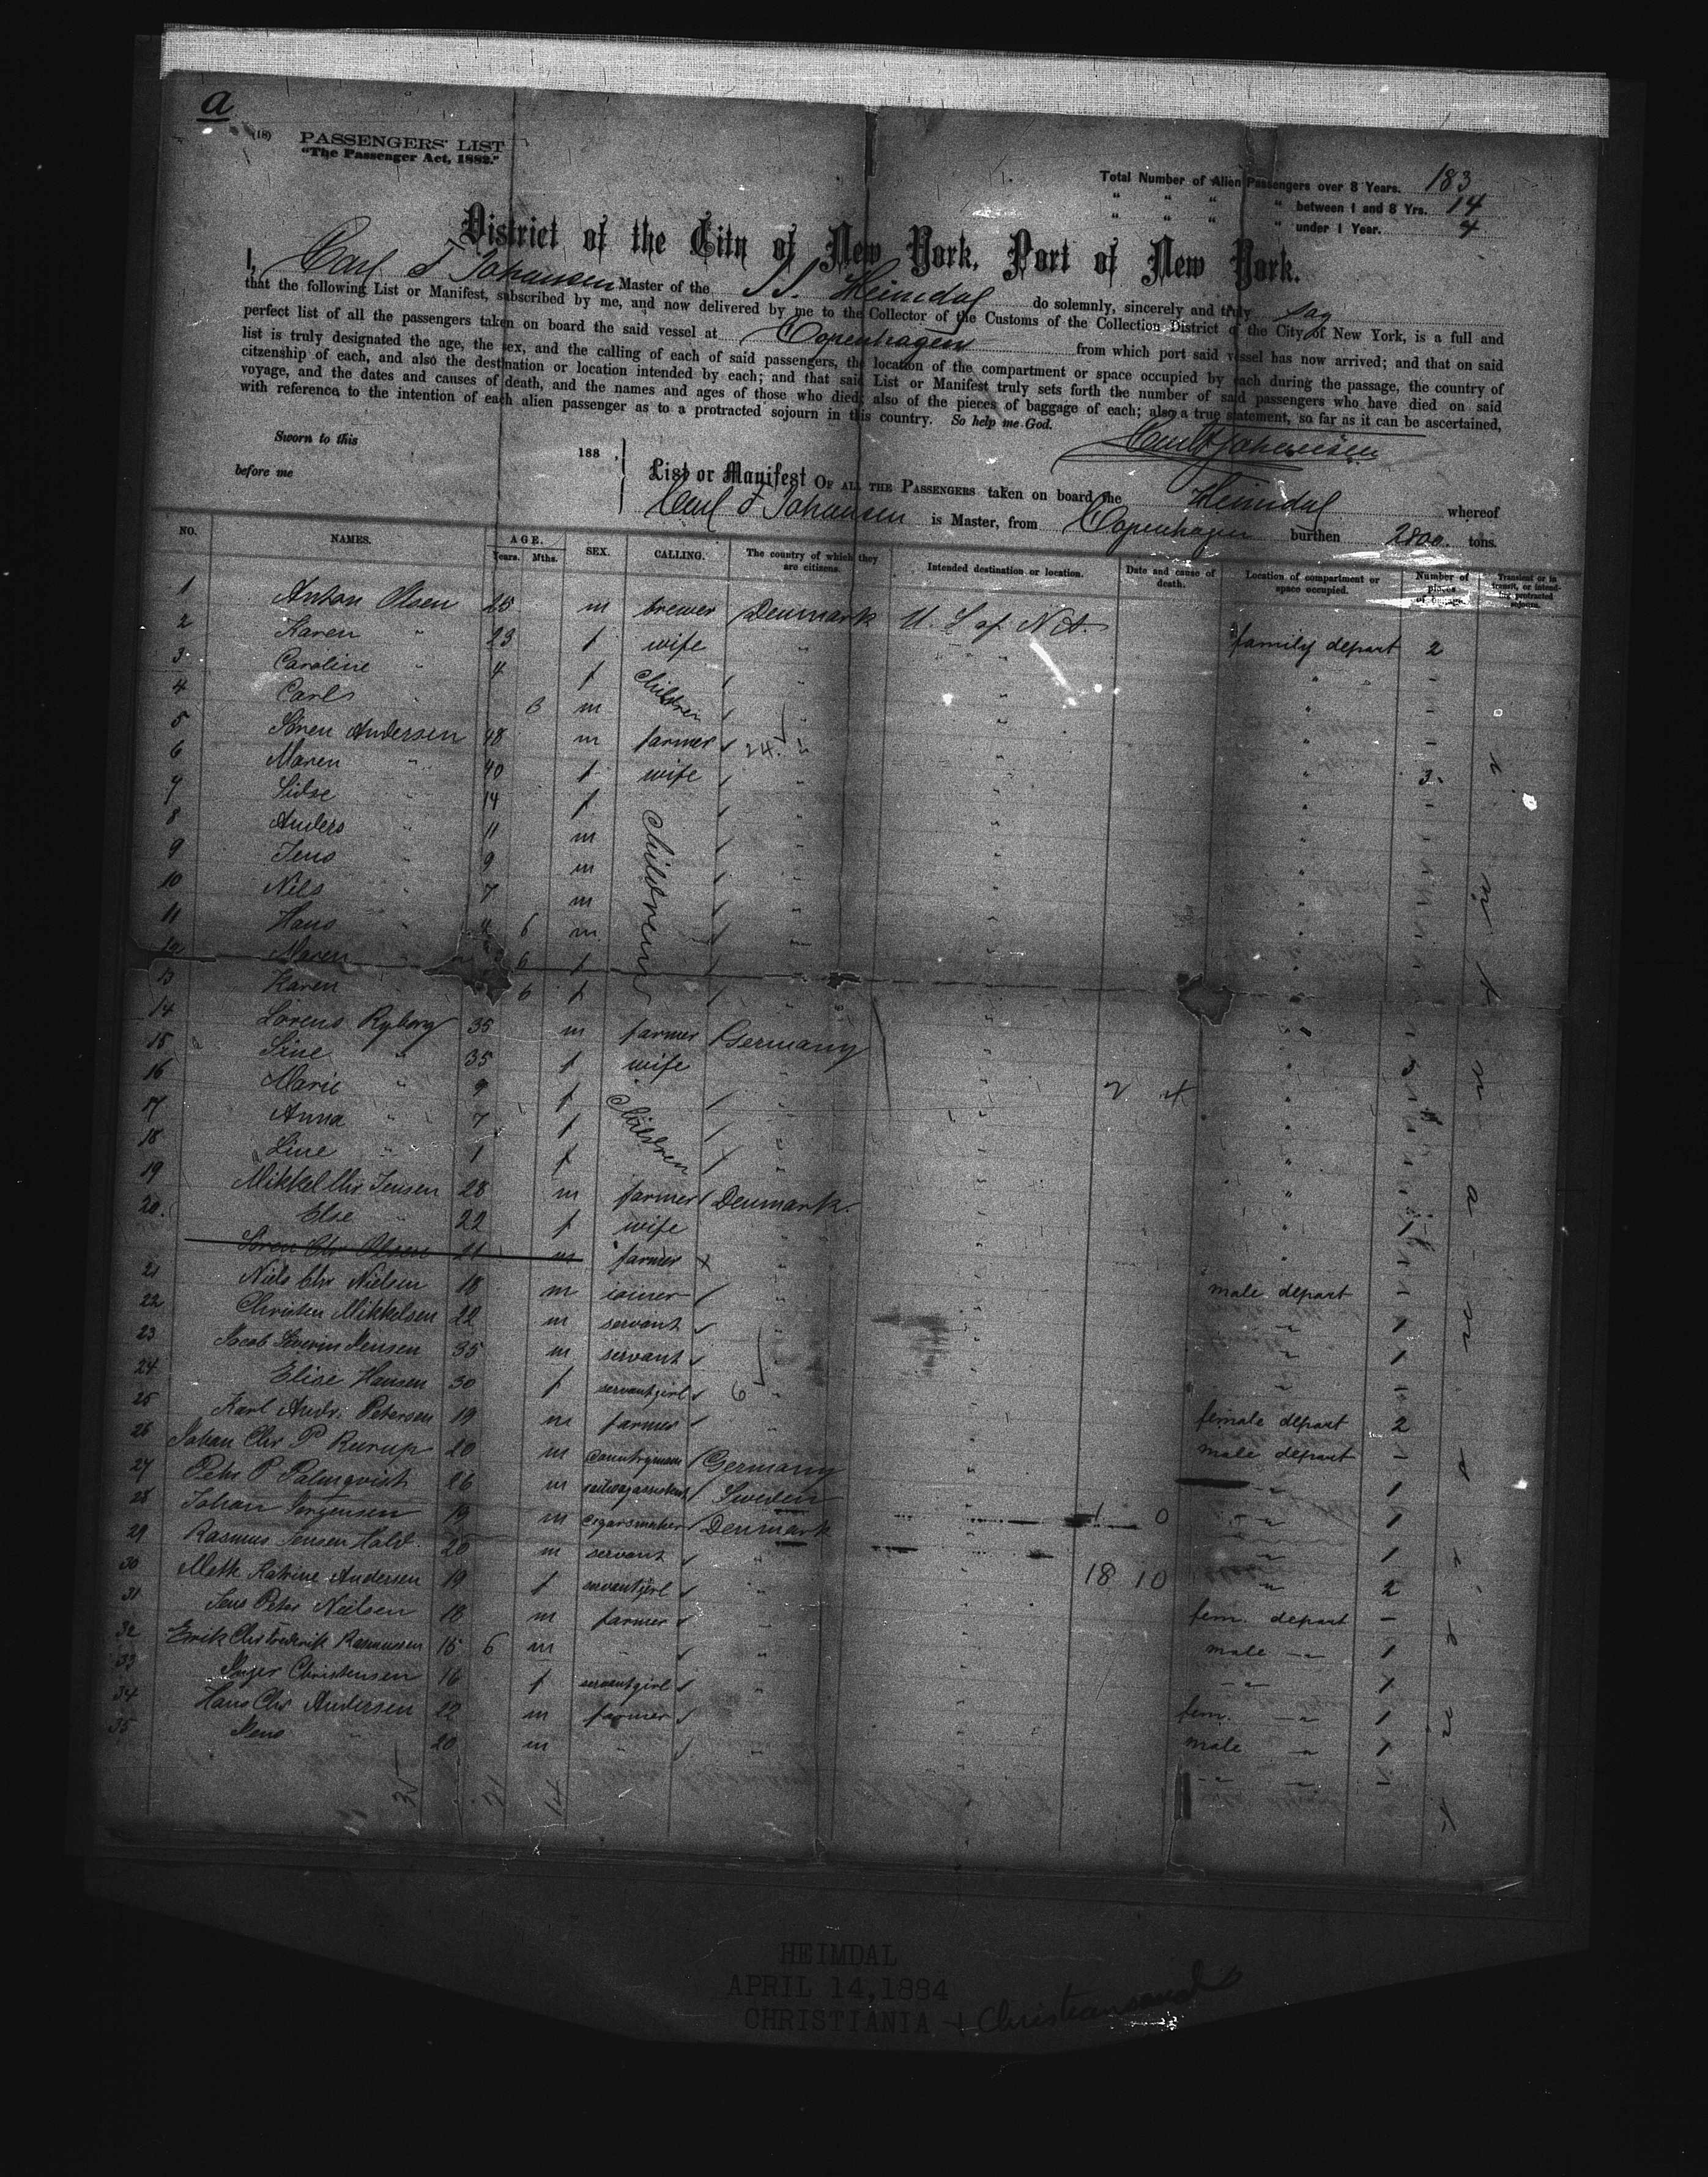 a
(18) PASSENGERS' LIST
"The Passenger Act, 1882."
Total Number of Alien Passengers over 8 Years. 183
" " " " between 1 and 8 Yrs. 14
" " " " under 1 Year. 4
District of the City of New York, Port of New York.
I, Carl F Johansen Master of the S. S. Heimdal do solemnly, sincerely and truly say
that the following List or Manifest, subscribed by me, and now delivered by me to the Collector of the Customs of the Collection District of the City of New York, is a full and
perfect list of all the passengers taken on board the said vessel at Copenhagen from which port said vessel has now arrived; and that on said
list is truly designated the age, the sex, and the calling of each of said passengers, the location of the compartment or space occupied by each during the passage, the country of
citzenship of each, and also the destination or location intended by each; and that said List or Manifest truly sets forth the number of said passengers who have died on said
voyage, and the dates and causes of death, and the names and ages of those who died; also of the pieces of baggage of each; also a true statement, so far as it can be ascertained,
with reference to the intention of each alien passenger as to a protracted sojourn in this country. So help me God.
Carl F Johansen
Sworn to this 188 ,
before me
List or Manifest OF ALL THE PASSENGERS taken on board the Heimdal whereof
Carl F Johansen is Master, from Copenhagen burthen 2800 tons.
NO. NAMES. AGE. Years. Mths. SEX. CALLING. The country of which they are citizens. Intended destination or location. Date and cause of death. Location of compartment or space occupied. Number of pieces of baggage. Transient or in transit, or intending protracted sojourn.
1 Anton Olsen 25 m brewer Denmark U. S of N A. family depart 2
2 Karen " 23 f wife " " " -
3 Caroline " 4 f children " " " -
4 Carls " 6 m " " " -
5 Sören Andersen 48 m farmer 24 " " " 3
6 Maren " 40 f wife " " " -
7 Sidse " 14 f children " " " -
8 Anders " 11 m " " " -
9 Jens " 9 m " " " -
10 Nils " 7 m " " " -
11 Hans " 4 6 m " " " -
12 Maren " 6 f " " " -
13 Karen " 6 f " " " -
14 Lorens Ryborg 35 m farmer Germany " " 3
15 Sine " 35 f wife " " " -
16 Marie " 9 f children " " " -
17 Anna " 7 f " " " -
18 Line " 1 f " " " -
19 Mikkel Chr Jensen 28 m farmer Denmark " " 1
20. Else " 22 f wife " " " -
Sören Chr Olsen 21 m farmer x male depart -
21 Niels Chr Nielsen 18 m joiner " " " 1
22 Christen Mikkelsen 22 m servant " " " 1
23 Jacob Severin Jensen 35 m servant " " " -
24 Elise Hansen 30 f servantgirl 6 " female depart 2
25 Karl Andr. Petersen 19 m farmer " " male depart -
26 Johan Chr P Rurup 20 m countryman Germany " " 1
27 Pehr P Palmqvist 26 m Sweden " 1 0 " 1
28 Johan Jorgensen 19 m cigarsmaker Denmark " 1
29 Rasmus Jensen Halv. 20 m servant " 18 10 " 2
30 Meth Katrine Andersen 19 f servantgirl " " fem. depart -
31 Jens Peter Nielsen 18 m farmer " " male " 1
32 Erik Chr Frederik Rasmussen 15 6 m " " " " 1
33 Inger Christensen 16 f servantgirl " " fem. " 1
34 Hans Chr Andersen 22 m farmer " " male " 1
35 Jens " 20 m " " " " -
35 21 14
HEIMDAL
APRIL 14,1884
CHRISTIANIA + Christiansand